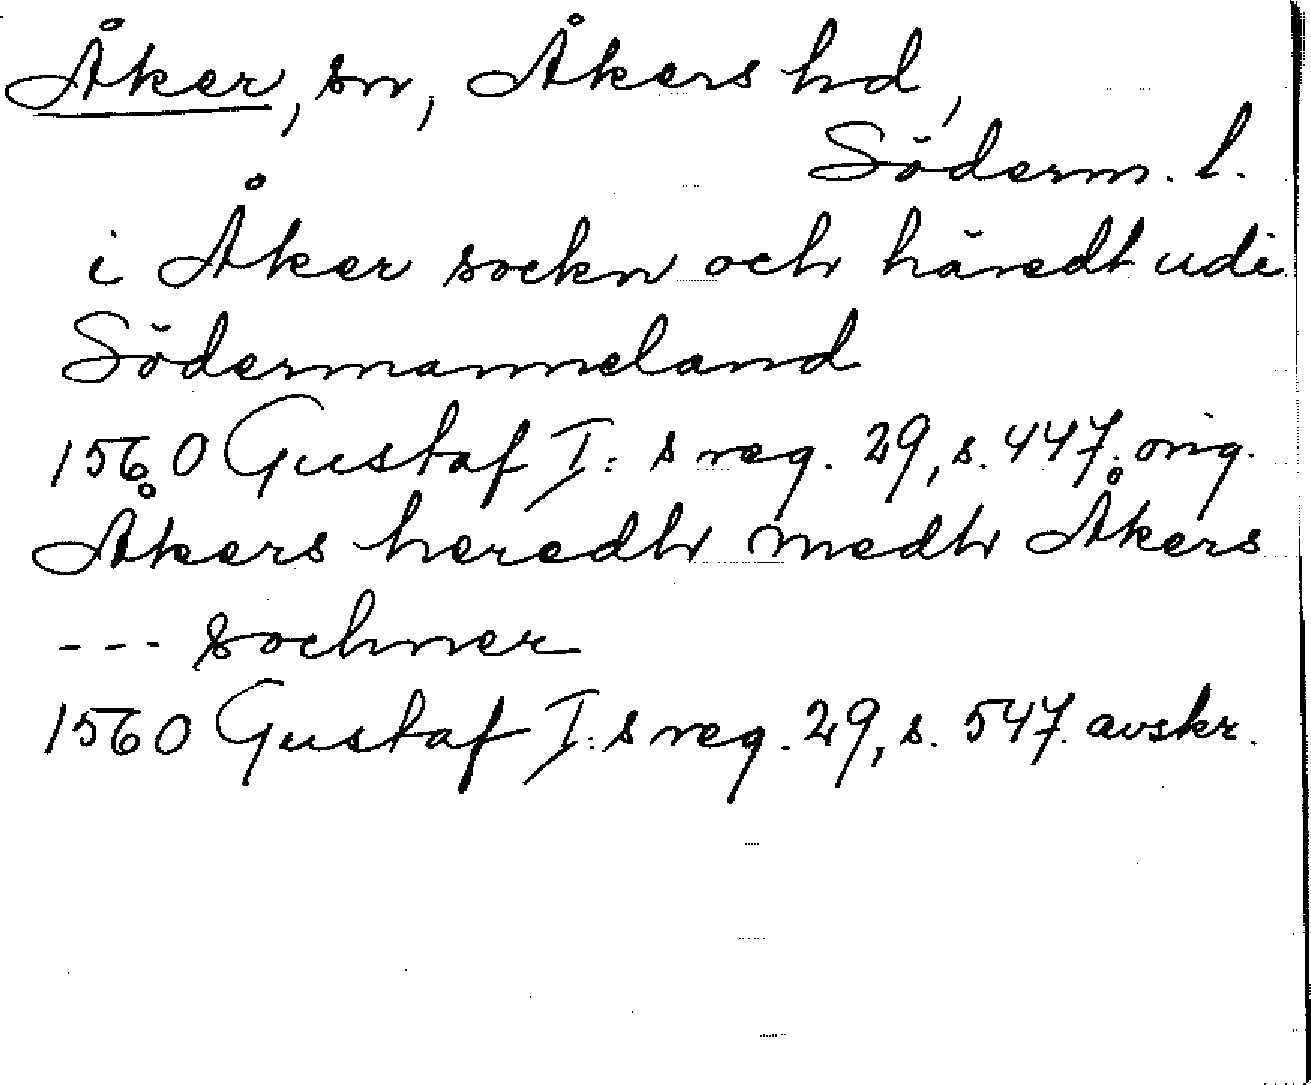 Åker, sn, Åkers hd,
Söderm. l.
i Åker sockn och häredt udi
Södermanneland
1560 Gustaf I:s reg. 29, s. 447. orig.
Åkers heredh medh Åkers
--- sochner
1560 Gustaf I:s reg. 29, s. 547. avskr.